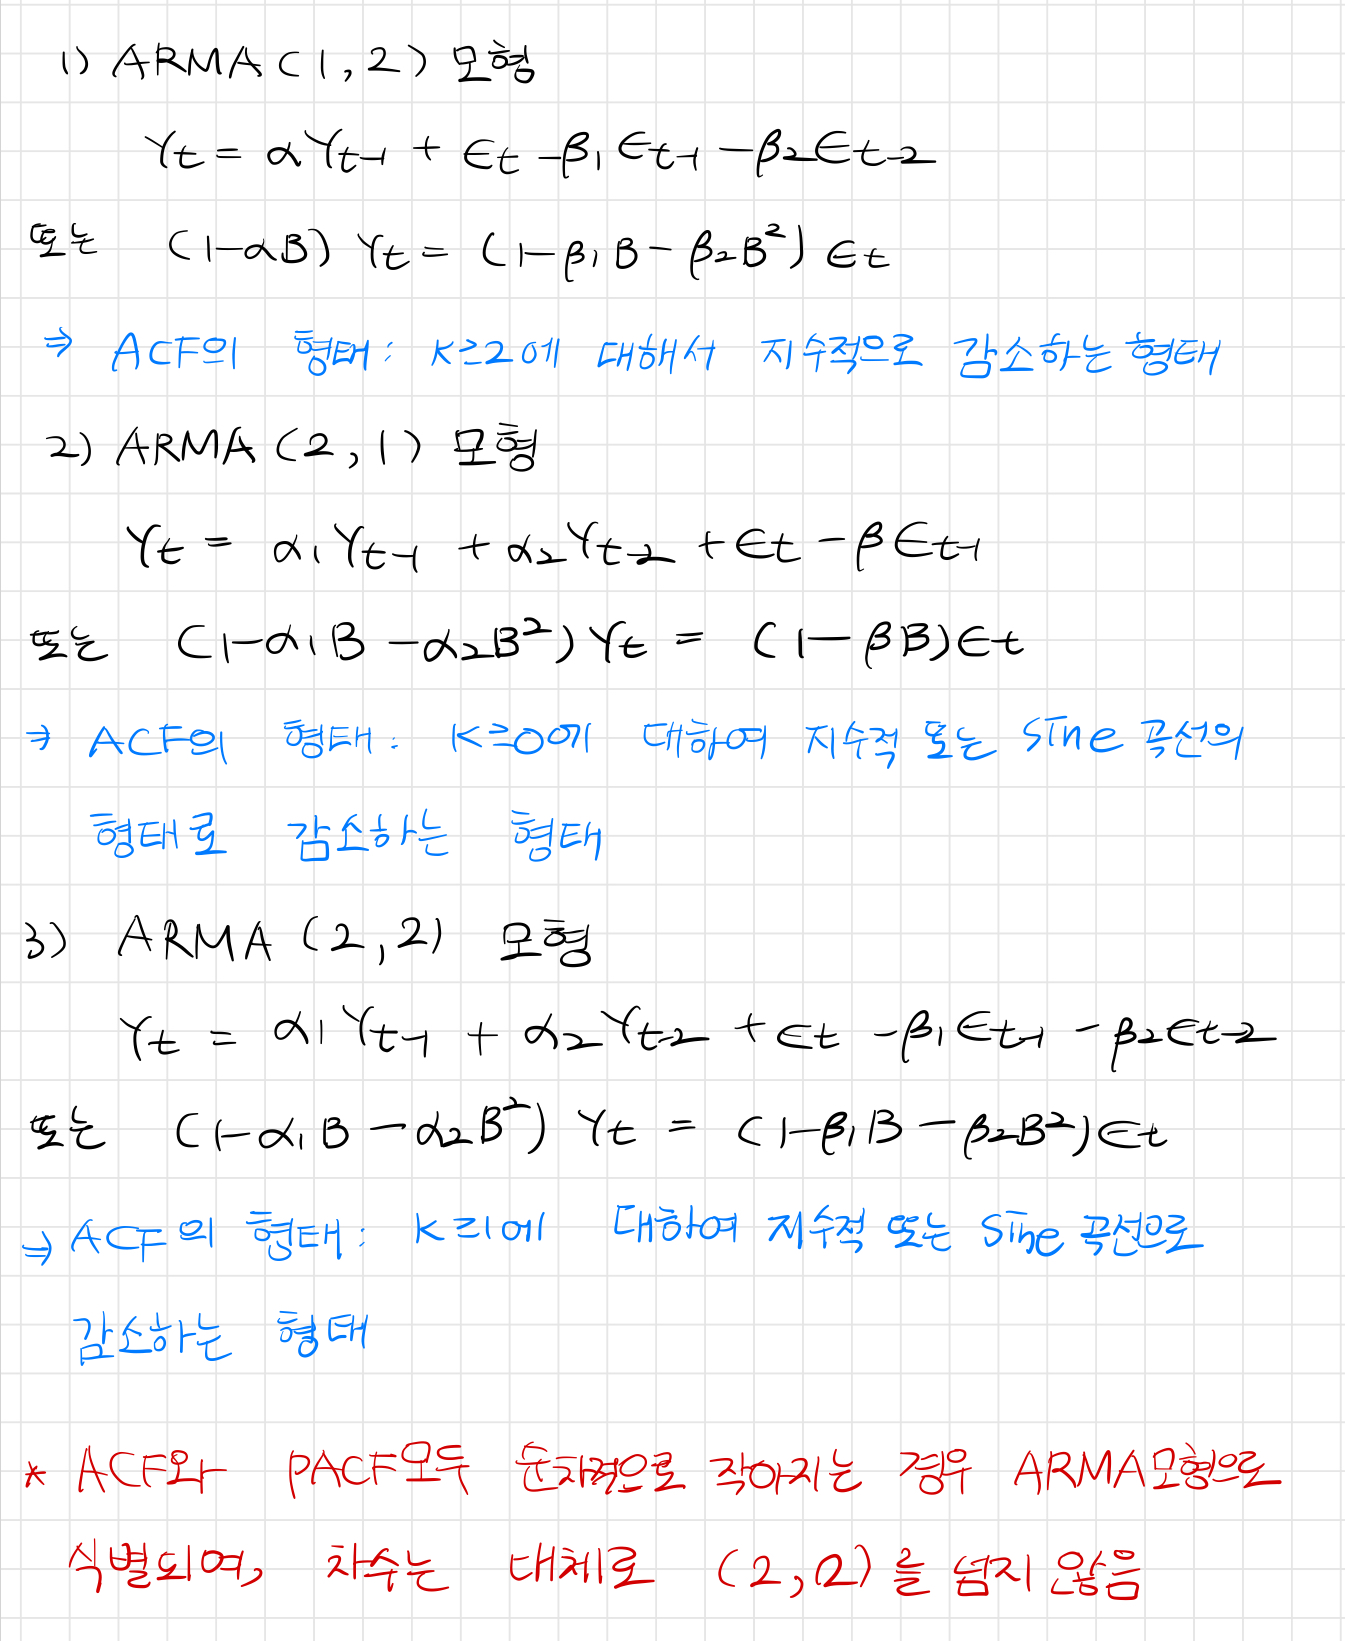 1) ARMA(1,2) 모형
Yt = αYt-1 + εt -β1εt-1 -β2εt-2
또는 (1-αB) Yt = (1-β1B - β2B²) εt
⇒ ACF의 형태: K≥2에 대해서 지수적으로 감소하는 형태
2) ARMA(2,1) 모형
Yt = α1Yt-1 + α2Yt-2 + εt - βεt-1
또는 (1-α1B - α2B²)Yt = (1-βB)εt
⇒ ACF의 형태: K≥0에 대하여 지수적 또는 sine 곡선의
형태로 감소하는 형태
3) ARMA (2,2) 모형
Yt = α1Yt-1 + α2Yt-2 + εt -β1εt-1 - β2εt-2
또는 (1-α1B - α2B²) Yt = (1-β1B - β2B²)εt
⇒ ACF의 형태: K≥1에 대하여 지수적 또는 Sine 곡선으로
감소하는 형태
* ACF와 PACF모두 순차적으로 작아지는 경우 ARMA모형으로
식별되며, 차수는 대체로 (2,2)를 넘지 않음